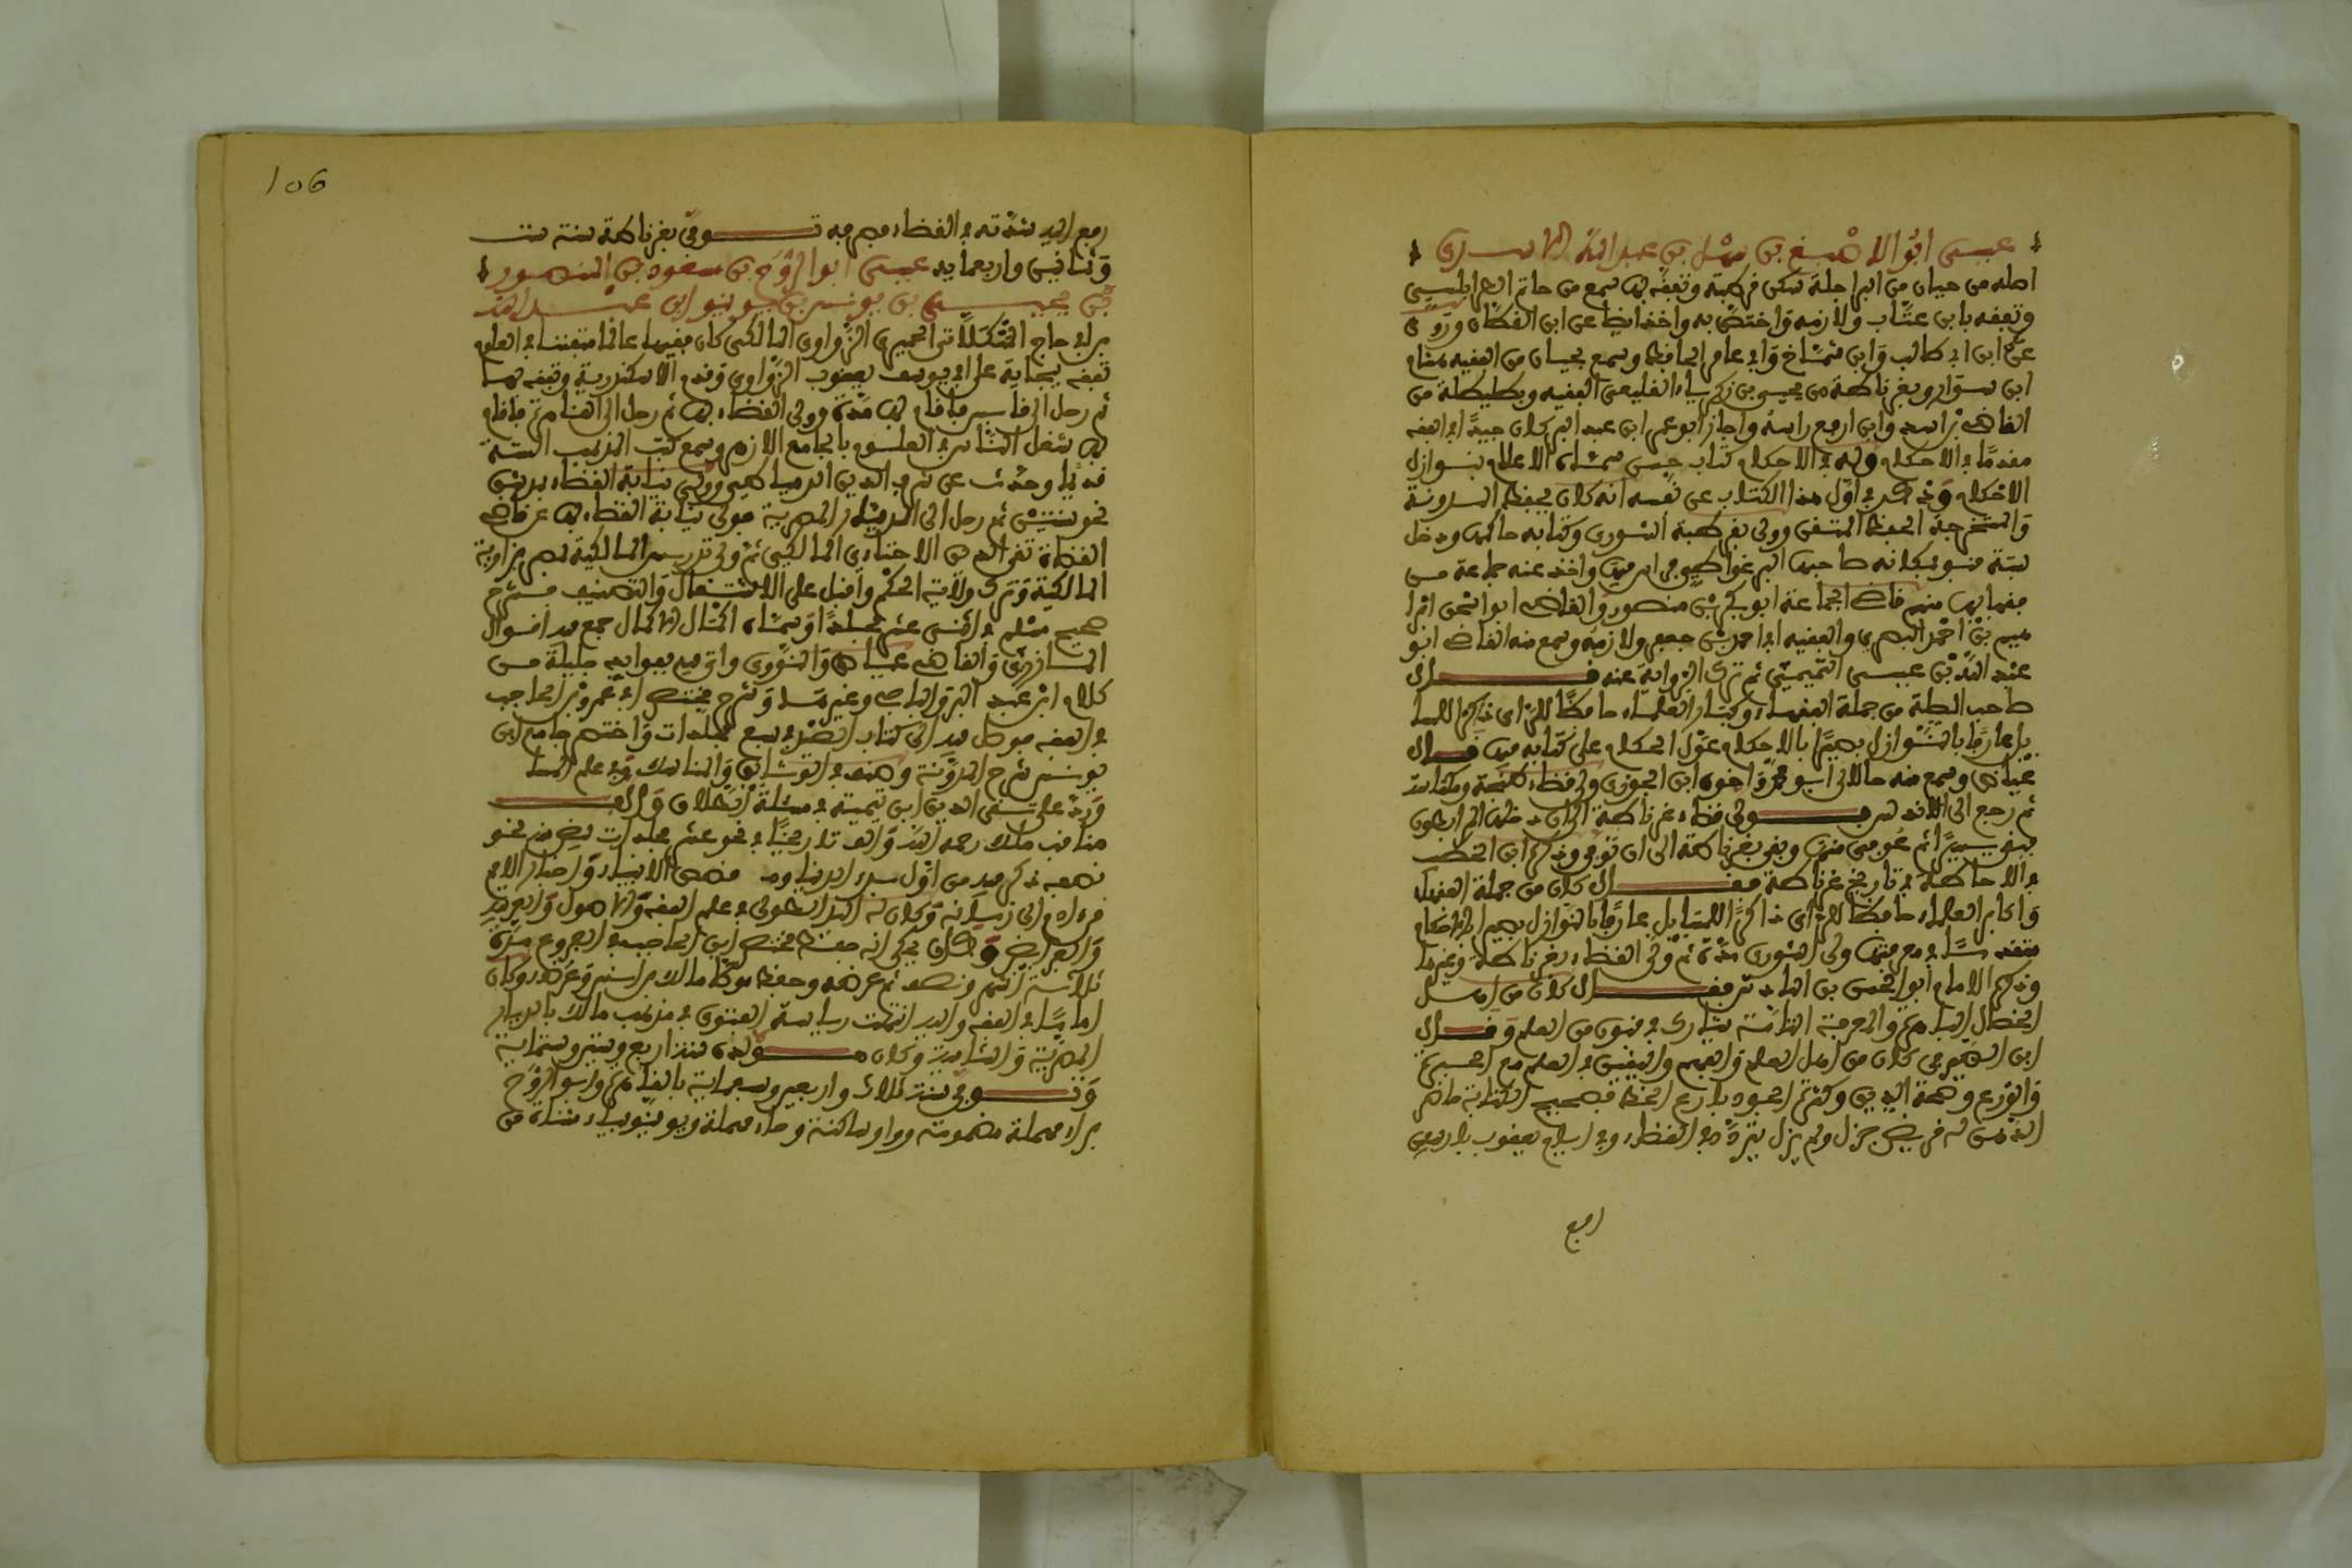 عيسى ابو الاصبغ بن سهل بن عبد الله الاسدي
اصله من جيان من البراجلة سكن قرطبة وتفقه بها سمع من حاتم الطرابلسي
وتفقه بابن عتاب ولازمه واختص به واخذ ايضا عن ابن القطان وروى
عن ابن ابي طالب وابن شماخ وابي عامر الحافظ وسمع بجيان من الفقيه هشام
ابن سوار وبغرناطة من يحيى بن زكرياء القليعي الفقيه وبطليطلة من
القاضي ابن اسد وابن ارفع راسه واجاز ابو عمر ابن عبد البر كان جيدا في الفقه
مقدما في الاحكام وله في الاحكام كتاب حسن سماه الاعلام بنوازل
الاحكام وذكر في اول هذا الكتاب عن نفسه انه كان يحفظ المدونة
والمستخرجة الحفظ المتقن وولى بقرطبة الشورى وكتابة حاكمها ودخل
سبتة فنوه بمكانه صاحبها البرغواطي في ايرميها واخذ عنه جماعة من
فقهايها منهم قاضي الجماعة ابو بكر بن منصور والقاضي ابو اسحق ابرا
هيم بن احمد البصري والفقيه ابو احمد بن جعفر ولازمه وسمع منه القاضي ابو
عبد الله بن عيسى التميمي ثم ترك الرواية عنه قال
صاحب الصلة من جملة الفقهاء وكبار العلماء حافظا للراي ذاكرا للمسا
يل عارفا بالنوازل بصيرا بالاحكام عول الحكام على كتابه فيها قال
عياض وسمع منه خالاى ابو محمد واخوه ابن الجوزي وولي قضاء طنجة ومكناسة
ثم رجع الى الاندلس فولي قضاء غرناطة الى ان دخلها المرابطون
فبقي يسيرا ثم عوفي منها وبقي بغرناطة الى ان توفي وذكره ابن الخطيب
في الاحاطة في تاريخ غرناطة فقال كان من جملة الفقهاء
واكابر العلماء حافظا للراي ذاكرا للمسايل عارفا بالنوازل بصيرا بالاحكام
متقدما في معرفتها ولي الشورى مدة ثم ولي القضاء بغرناطة وغيرها
وذكره الامام ابو الحسن بن الباذش فقال كان من اهل
الخصال الباهرة والمعرفة التامة يشارك في فنون من العلم وقال
ابن الصيرفي كان من اهل العلم والفهم والتفنن في العلم مع الخير
والورع وصحة الدين وكثرة الجود بارع الخط فصيح الكتابة حاضر
الذهن له قريض جزل ولم يزل يتردد في القضاء وفي اسلم يعقوب بادريس
ارفع
106
ارفع اليه سنة في القضاء فصرفه توفي بغرناطة سنة ست
وثمانين واربعماية عيسى ابو الروح بن مسعود بن المنصور
بن يحيى بن يونس بن يوينو ابن عبد الله
بن ابي حاج المنكلاتي الحميري الزواوي المالكي كان فقيها عالما متفننا في العلوم
تفقه ببجاية على ابي يوسف يعقوب الزواوي وقدم الاسكندرية وتفقه بها
ثم رحل الى قابس فاقام بها مدة وولي القضاء بها ثم رحل الى القاهرة فاقام
بها شغل الناس في العلوم بالجامع الازهر وسمع كتب المذهب الستة
قديما وحدث عن شرف الدين الدمياطي وولي نيابة القضاء بدمشق
نحو سنتين ثم رحل الى الديار المصرية فولي نيابة القضاء بها عن قاضي
القضاة تقي الدين الاخناءي المالكي ثم ولي تدريس المالكية بمصر بزاوية
المالكية وترك ولاية الحكم واقبل على الاشتغال والتصنيف فشرح
صحيح مسلم في اثني عشر مجلدا وسماه اكمال الاكمال جمع فيه اقوال
المازري والقاضي عياض والنووي واتى فيه بفوايد جليلة من
كلام ابن عبد البر والباجي وغيرهما وشرح مختصر ابي عمرو بن الحاجب
في الفقه فوصل فيه الى كتاب الصيد في سبع مجلدات واختصر جامع ابن
يونس شرح المدونة وصنف في الوثايق والمناسك وفي علم المسا
ورد على تقي الدين ابن تيمية في مسئلة الطلاق والف
مناقب مالك رحمه الله والف تاريخا في نحو عشر مجلدات بيض منه نحو
نصفه ذكر فيه من اول بدء الدنيا و قصص الانبياء واخبار الامم
من ادم الى زمانه وكان له اليد الطولى في علم الفقه والاصول والعربية
والفرايض وكان يحكى انه حفظ مختصر ابن الحاجب في الفروع مدة
ثلاثة اشهر ونصف ثم عرضه وحفظ موطا مالك بن انس وعرضه وكان
اماما في الفقه واليه انتهت رياسة الفتوى في مذهب مالك بالديار
المصرية والشامية وكان مولده سنة اربع وستين وستماية
وتوفي سنة ثلاث واربعين وسبعماية بالقاهرة وابو الروح
براء مهملة مضمومة وواو ساكنة وحاء مهملة ويوينو بياء مثناة من